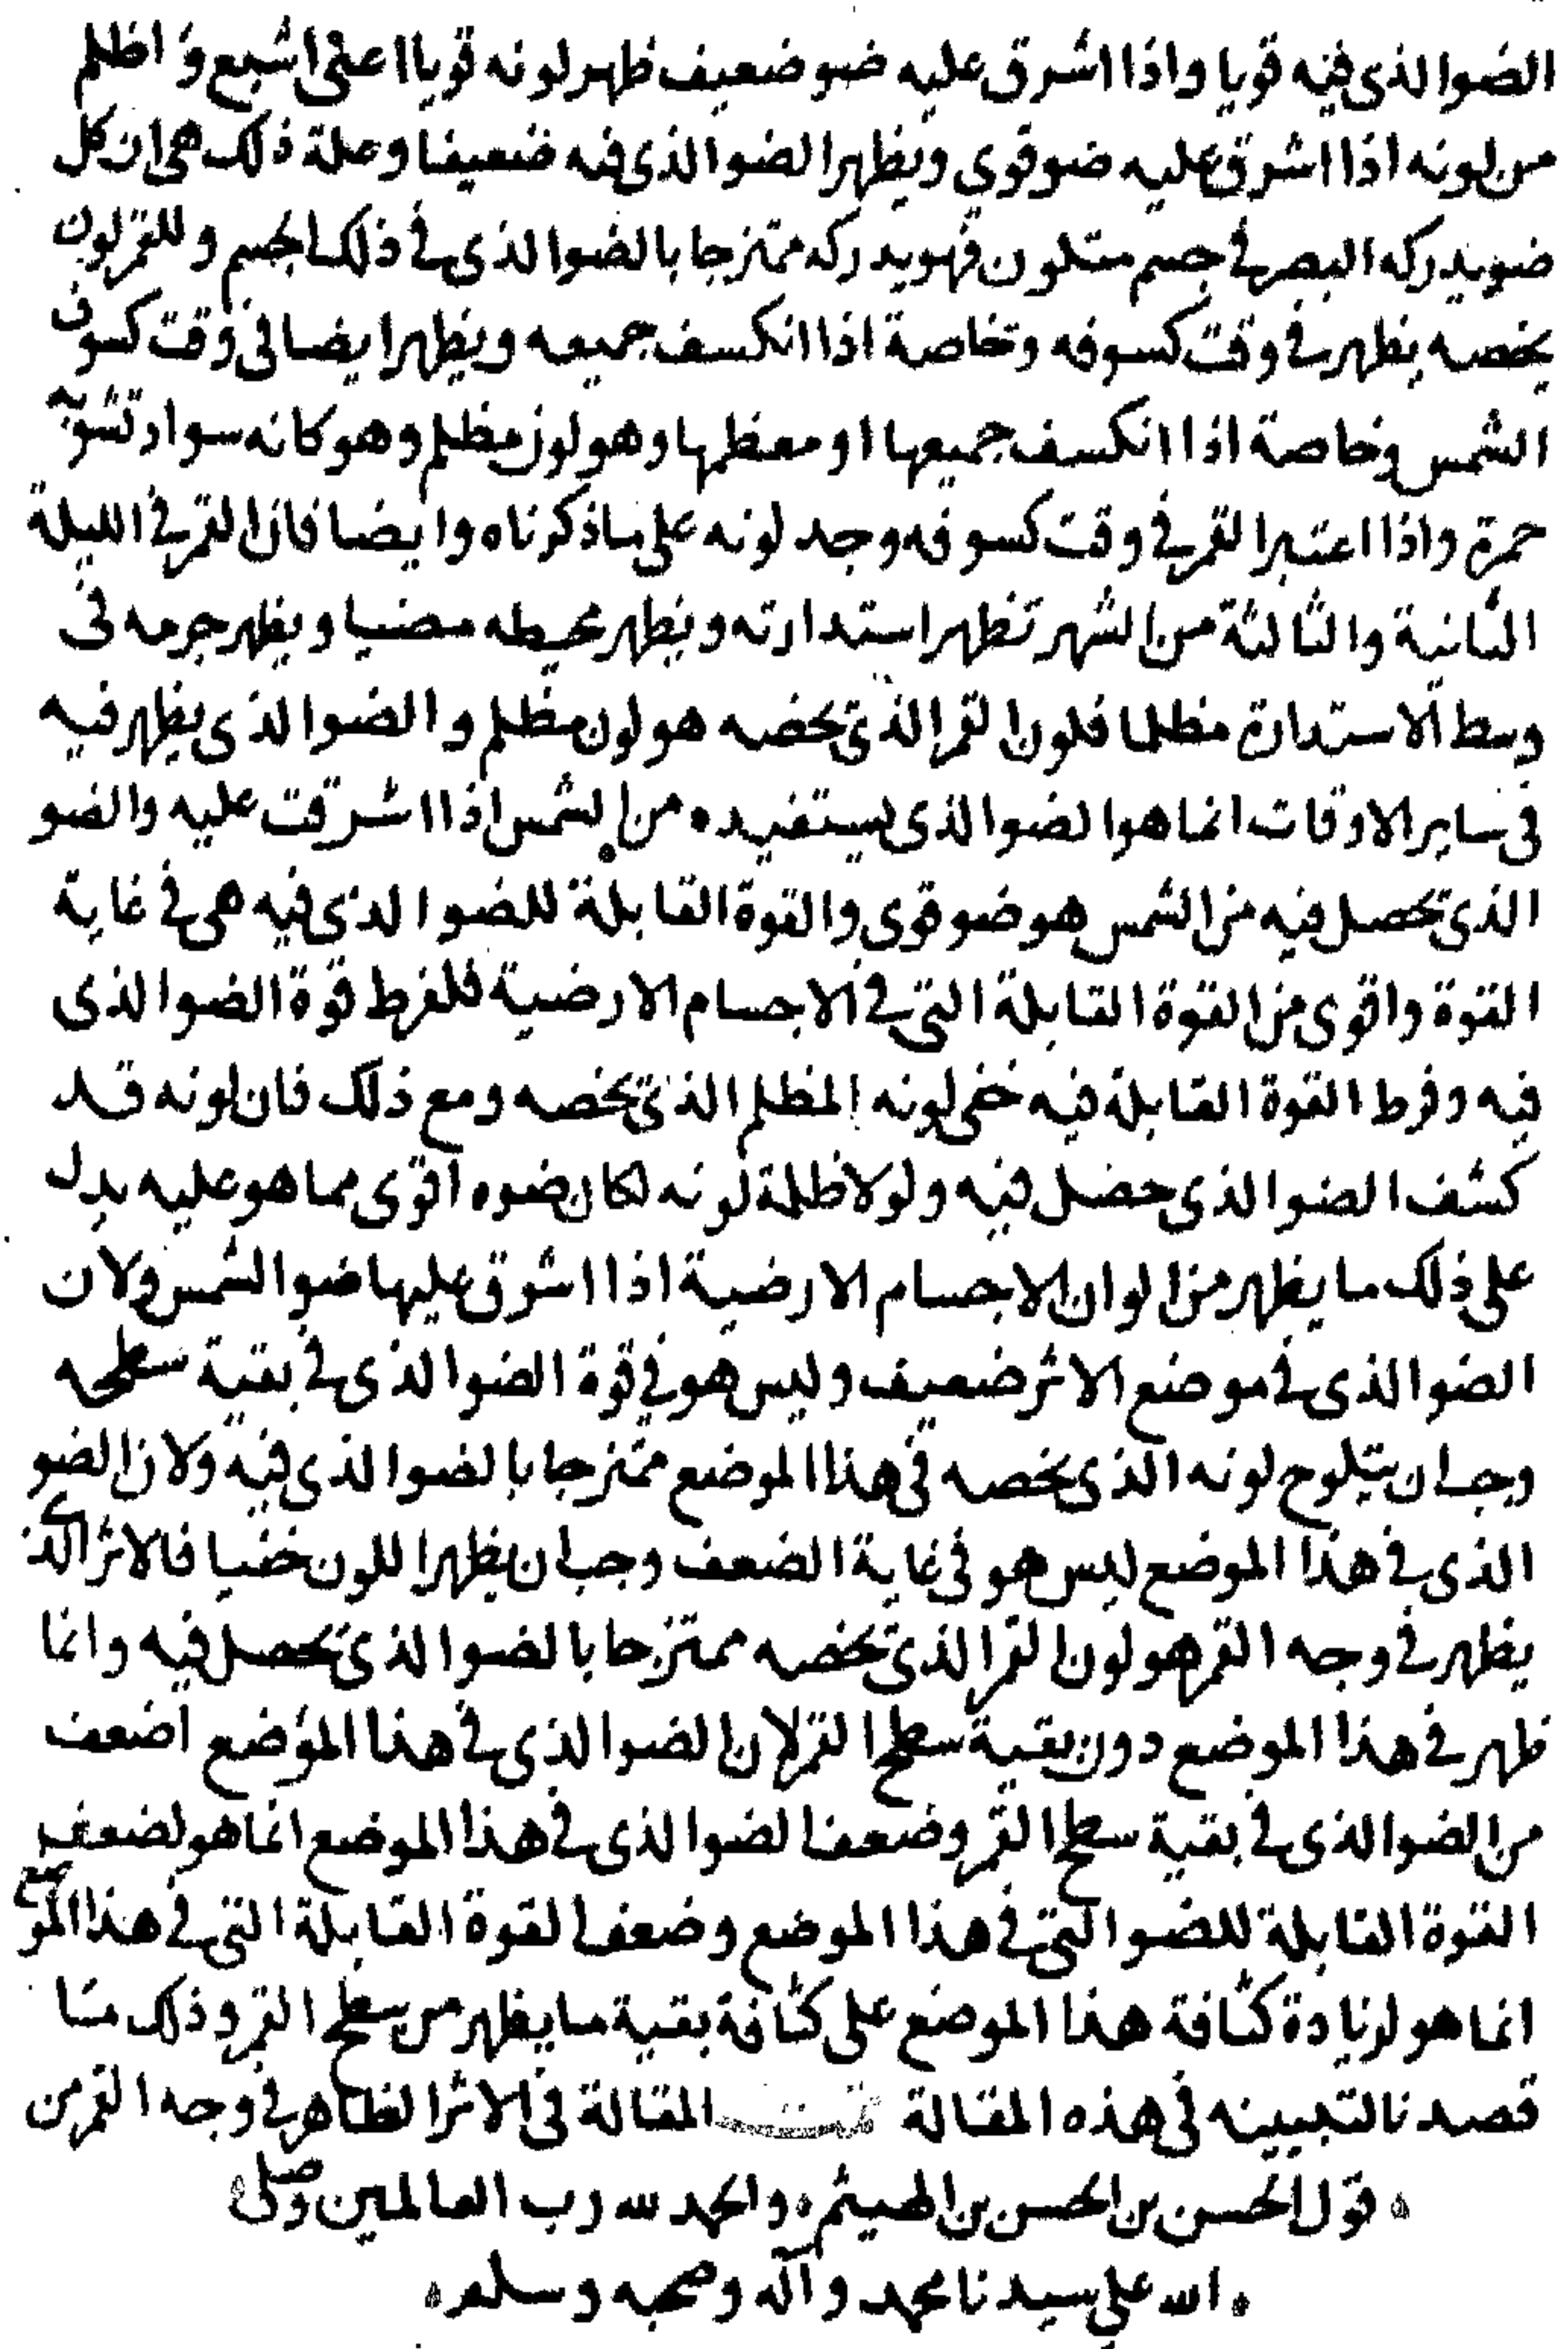 الضوا لذى فيه قويا واذا اشرق عليه ضو ضعيف ظهر لونه قويا اعنى اشبع واظلم
من لونه اذا اشرق عليه ضو قوى ويظهر الضو الذى فيه ضعيفا وعلة ذلك هى ان كل
ضو يدركه البصر فى جسم متلون فهو يدركه ممتزجا بالضو الذى فى ذلك الجسم وللقمر لون
يخصه يظهر فى وقت كسوفه وبخاصة اذا انكسف جميعه ويظهر ايضا فى وقت كسوف
الشمس وخاصة اذا انكسف جميعها او معظمها وهو لون مظلم وهو كانه سواد تشوبه
حمرة واذا اعتبر القمر فى وقت كسوفه وجد لونه على ما ذكرناه وايضا فان القمر فى الليلة
الثانية والثالثة من الشهر تظهر استدارته ويظهر محيطه مضيا ويظهر جرمه فى
وسط الاستدارة مظلما فلون القمر الذى يخصه هو لون مظلم والضو الذى يظهر فيه
فى ساير الاوقات انما هو الضو الذى يستفيده من الشمس اذا اشرقت عليه والضو
الذى يحصل فيه من الشمس هو ضو قوى والقوة القابلة للضو الذى فيه هى فى غاية
القوة واقوى من القوة القابلة التى فى الاجسام الارضية فلفرط قوة الضو الذى
فيه وفرط القوة القابلة فيه خفى لونه المظلم الذى يخصه ومع ذلك فان لونه قد
كشف الضو الذى حصل فيه ولولا ظلمة لونه لكان ضوه اقوى مما هو عليه يدل
على ذلك ما يظهر من الوان الاجسام الارضية اذا اشرق عليها ضو الشمس ولان
الضو الذى فى موضع الاثر ضعيف وليس هو فى قوة الضو الذى فى بقية سطحه
وجب ان يتلوح لونه الذى يخصه فى هذا الموضع ممتزجا بالضو الذى فيه ولان الضو
الذى فى هذا الموضع ليس هو فى غاية الضعف وجب ان يظهر اللون خفيا فالاثر الذى
يظهر فى وجه القمر هو لون القمر الذى يخصه ممتزجا بالضو الذى يحصل فيه وانما
ظهر فى هذا الموضع دون بقية سطح القمر لان الضو الذى فى هذا الموضع اضعف
من الضو الذى فى بقية سطح القمر وضعف الضو الذى فى هذا الموضع انما هو لضعف
القوة القابلة للضو التى فى هذا الموضع وضعف القوة القابلة التى فى هذا الموضع
انما هو لزيادة كثافة هذا الموضع على كثافة بقية ما يظهر من سطح القمر وذلك ما
قصدنا لتبيينه فى هذه المقالة تمت المقالة فى الاثر الظاهر فى وجه القمر من
قول الحسن بن الحسن بن الهيثم والحمد لله رب العالمين وصلى
الله على سيدنا محمد وآله وصحبه وسلم